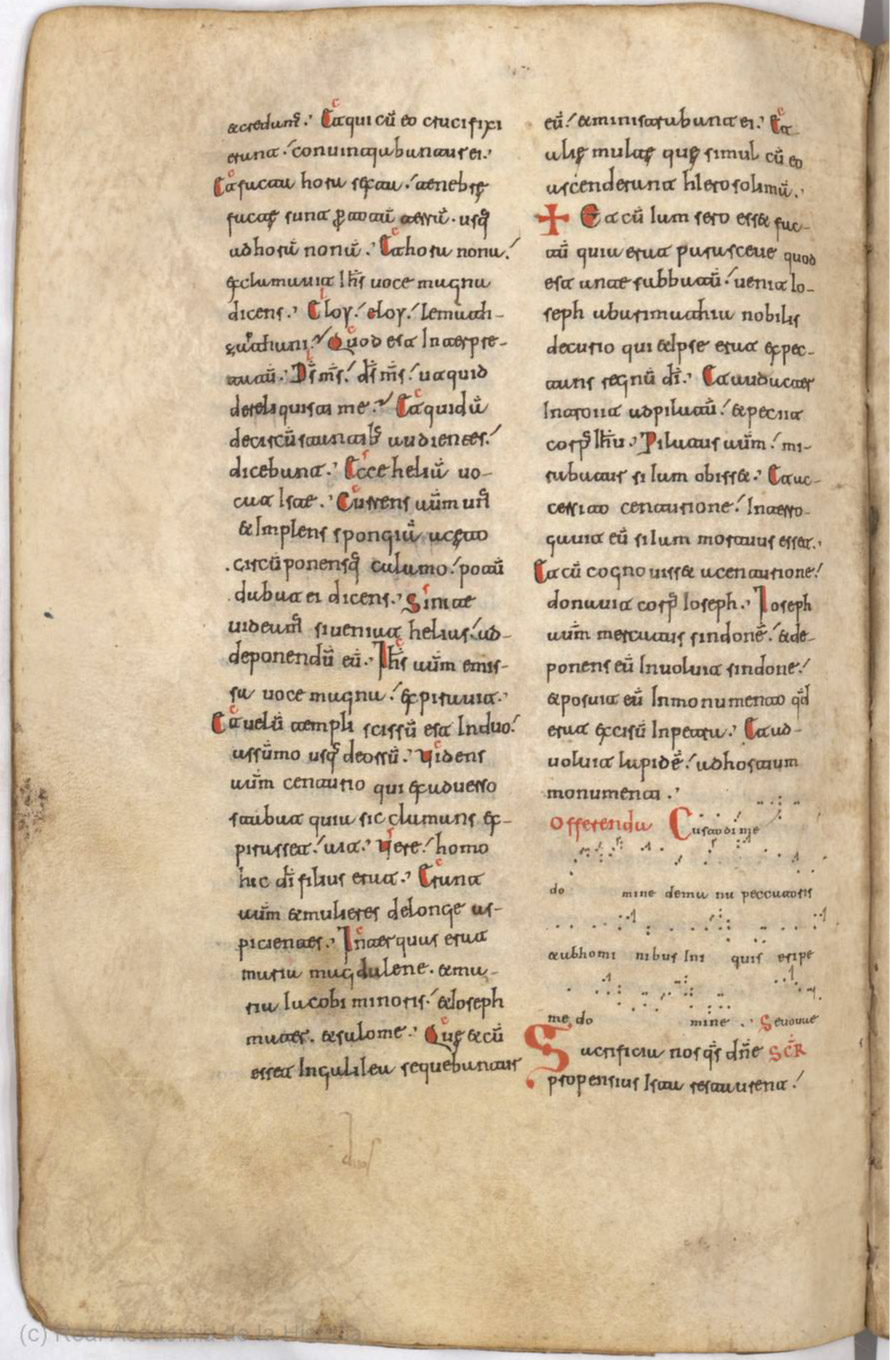 &credam̅. Et qui cū eo crucifixi
erant conuitiabantur ei.
Et facta hora sexta tenebre
facte sunt ꝑ totā terrā. usq̅
ad horā nonā. Et hora nona
exclamauit Ihs̅ uoce magna
dicens. Eloy eloy lema
Quod est Interpre-
tatū. Ds̅ ms̅ ds̅ ms̅ ut quid
dereliquisti me. Et quidā
de circūstantib; audientes
dicebant. Ecce heliā uo-
cat Iste. Currens aūm un̅
& Implens spongiā aceto
circūponensq̅ calamo potū
dabat ei dicens. Sinite
uideam̅ si ueniat helias ad
deponendū eū. Ihs̅ aūm emis-
sa uoce magna expirauit.
Et uelū templi scissū est Induo
a sūmo usq̅ deorsū. Videns
aūm centurio qui exaduerso
stabat quia sic clamans ex-
pirasset ait. Vere homo
hic di̅ filius erat. Erant
aūm & mulieres delonge as-
picientes. Inter quas erat
maria magdalene. & ma-
ria Iacobi minoris & Ioseph
mater. & salome. Que & cū
esset Ingalilea sequebantur
eū & ministrabant ei. Et
alie multe que simul cū eo
ascenderant hIerosolimā.
Et cū Iam sero esset fac-
tū quia erat parasceue quod
est ante sabbatū uenit Io-
seph abarimathia nobilis
decurio qui & Ipse erat expec-
tans regnū di̅. Et audacter
Introiit adpilatū & petiit
corp̅ Ihu̅. Pilatus aūm mi-
rabatur si Iam obisset. Et ac-
cersito centurione Interro-
gauit eū si Iam mortuus esset.
Et cū cognouisset acenturione
donauit corp̅ Ioseph. Ioseph
aūm mercatus sindonē & de-
ponens eū Inuoluit sindone
& posuit eū Inmonumento qd̅
erat excisū Inpetra. Et ad-
uoluit lapidē adhostium
monumenti.
Offerenda Custodi me
do mine demanu peccatoris
& abhomi nibus Ini quis eripe
me do mine. Seuouae
Sacrificia nos qs̅ dn̅e SCR̅
propensius Ista restaurent